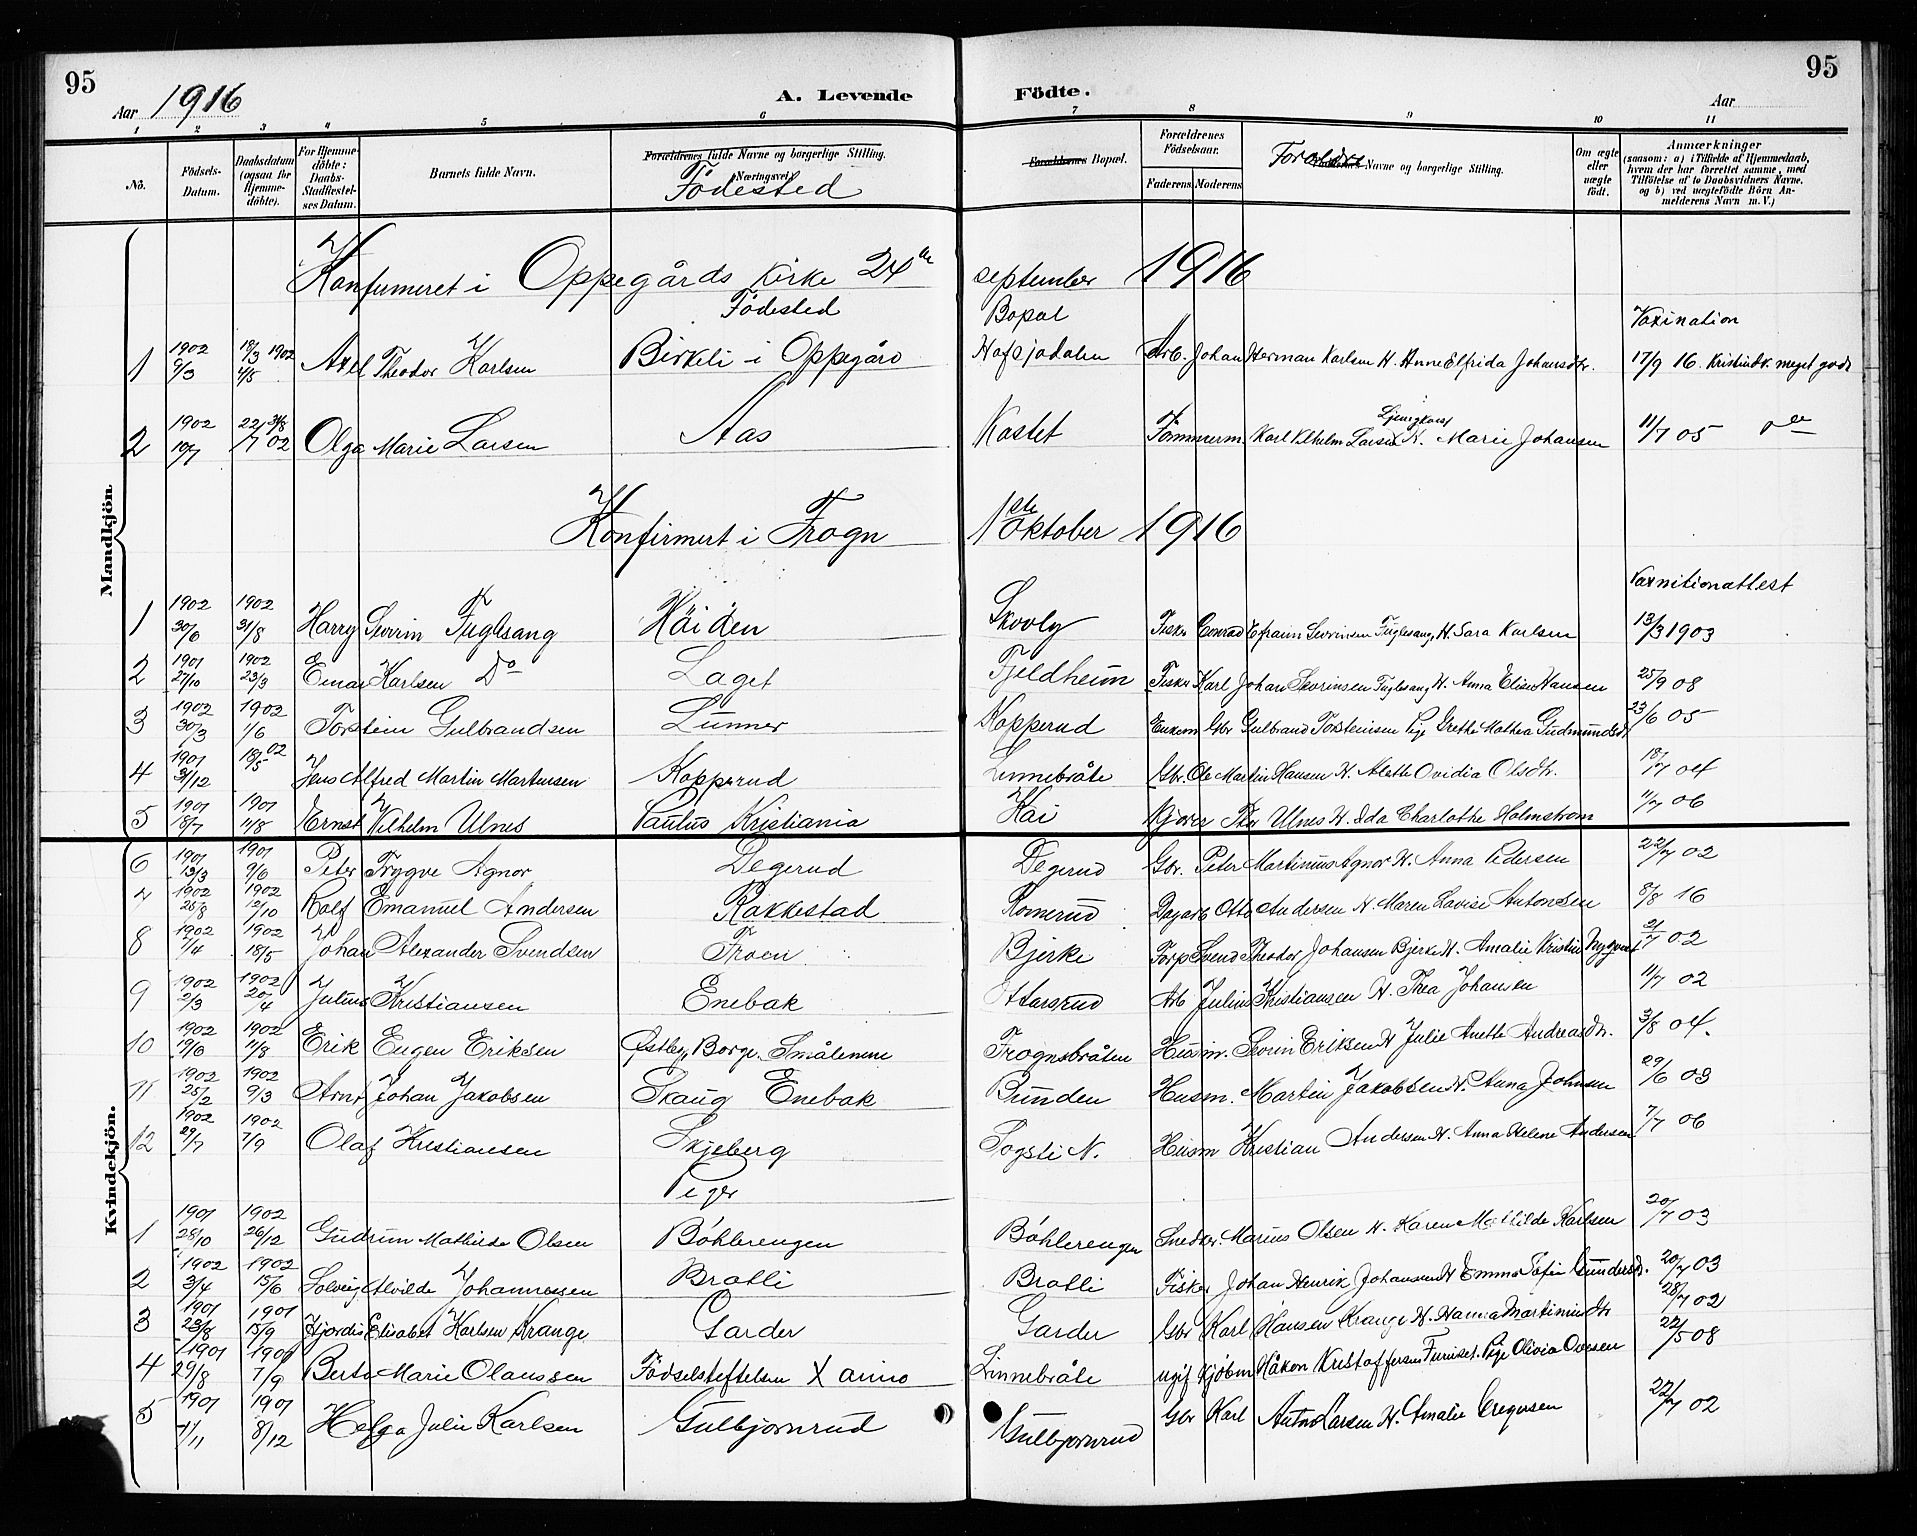 95
95
Aar 1916
A. Levende Födte.
Aar
1 2 3 4 5 6 7 8 9 10 11
No.
Födsels-Datum.
Daabsdatum (ogsaa for Hjemme-döbte).
For Hjemme-döbte: Daabs-Stadfæstel-ses Datum.
Barnets fulde Navn.
Forældrenes fulde Navne og borgerlige Stilling.
Næringsvei
Födested
Forældrenes Bopæl.
Forældrenes Födselsaar.
Faderens Moderens
Forældre Navne og borgerlige Stilling.
Om ægte eller uægte födt.
Anmærkninger
(saasom: a) i Tilfælde af Hjemmedaab, hvem der har forrettet samme, med Tilföielse af to Daabsvidners Navne, og b) ved uægtefödte Börn An-melderens Navn m. V.)
Mandkjön
Konfirmeret i Oppegårds Kirke 24de september 1916
Födested Bopæl Vaxination
1 1902 9/3 18/3 1902 4/5 Axel Theodor Karlsen Birkeli i Oppegård Hafsjodalen Arb. Johan Herman Karlsen H. Anne Elfrida Johansdtr. 17/9 16. Kristindk. meget godt
2 1902 10/7 Olga Marie Larsen Aas Kastet Tömmerm. Karl Vilhelm Larsen Ljungkvist H. Marie Johansen 11/7 05 do
Konfirmert i Frogn 1ste Oktober 1916
1 1902 30/6 1902 31/8 Harry Severin Fuglesang Häiden Skovly Fisker Conrad Efraim Severinsen Fuglesang, H. Sara Karlsen 13/3 1903
2 1901 27/10 1902 23/3 Einar Karlsen Do Laget Fjeldheim Fisker Karl Johan Severinsen Fuglesang H. Anna Elise Hansen 25/9 08
3 1902 30/3 1902 1/6 Torstein Gulbrandsen Lunner Kopperud Enkem Gbr Gulbrand Torsteinsen Pige Grethe Mathea Gudmundsdtr 23/6 05
4 1901 31/12 18/5 02 Jens Alfred Martin Martinsen Kopperud Linnebråte Gbr. Ole Martin Hansen H. Alette Ovidia Olsdtr. 18/7 04
5 1901 18/7 1901 11/8 Ernst Vilhelm Ulnes Paulus Kristiania Kai Kjører Thor Ulnes H. Ida Charlothe Holmstrøm 11/7 06
6 1901 13/3 1901 9/6 Peter Trygve Agnor Degerud Degerud Gbr. Peter Martinius Agnor H. Anna Pedersen 22/7 02
7 1902 25/8 1902 12/10 Rolf Emanuel Andersen Rakkestad Romerud Dagarb Otto Andersen H. Maren Lovise Antonsen 8/8 16
8 1902 7/4 1902 18/5 Johan Alexander Svendsen Froen Bjerke Forp Svend Theodor Johansen Bjerke H. Amalie Kristine Nygaard 2/7 02
9 1902 2/3 1902 20/4 Julius Kristiansen Enebak Ottarsrud Arb Julius Kristiansen H. Thea Johansen 11/7 02
10 1902 19/6 1902 11/8 Erik Eugen Eriksen Østby, Borge. Smålenene Frognsbråten Husm. Severin Eriksen H Julie Anette Andreasdtr. 3/8 04.
11 1902 25/2 1902 9/3 Arnt Johan Jakobsen Skaug Enebak Bunden Husm. Martin Jakobsen H. Anna Johnsen 29/6 03
12 1902 29/7 1902 7/9 Olaf Kristiansen Skjeberg Sogsti N. Husm Kristian Andersen H. Anna Helene Andersen 7/7 06
Kvindekjön.
Piger
1 1901 28/10 1902 26/12 Gudrun Mathilde Olsen Böhlerengen Böhlerengen Snedker. Marius Olsen H. Karen Mathilde Karlsen 20/7 03
2 1902 3/4 1902 15/6 Solveig Alvilde Johannessen Bratli Bratli Fisker Johan Henrik Johansen H Emma Sofie Gundersd. 20/7 03
3 1901 23/8 1901 15/9 Hjordis Elisabet Karlsen Krange Garder Garder Gbr Karl Hansen Krange H. Hanna Martiniusdtr 28/7 02
4 1901 29/8 1901 7/9 Berta Marie Olaussen Födselsteftelsen X ania Linnebråte ugif Kjøbm Håkon Kristoffersen Furuset. Pige Olivia Ovesen 22/5 08
5 1901 7/11 1901 8/12 Helga Julie Karlsen Gulbjørnrud Gulbjørnrud Gbr Karl Anton Larsen H. Amalie Gregersen 22/7 02